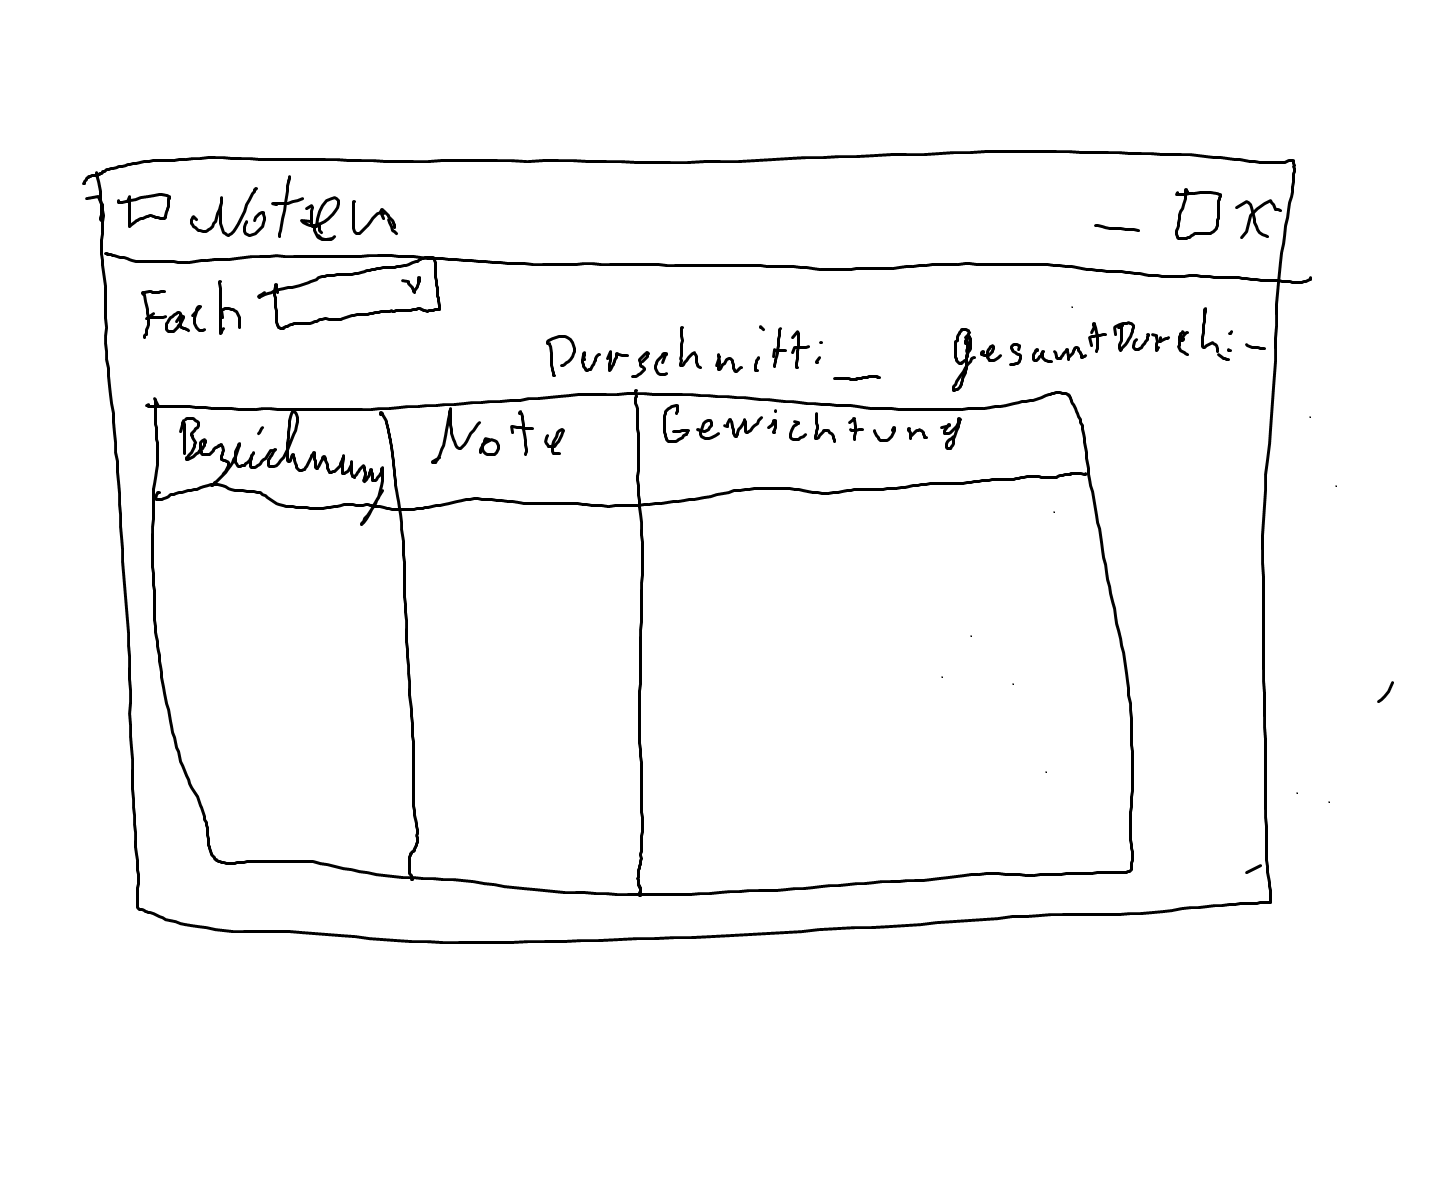 Noten _ □ X
Fach
Durschnitt: _ gesamtDurch: -
Bezeichnung Note Gewichtung